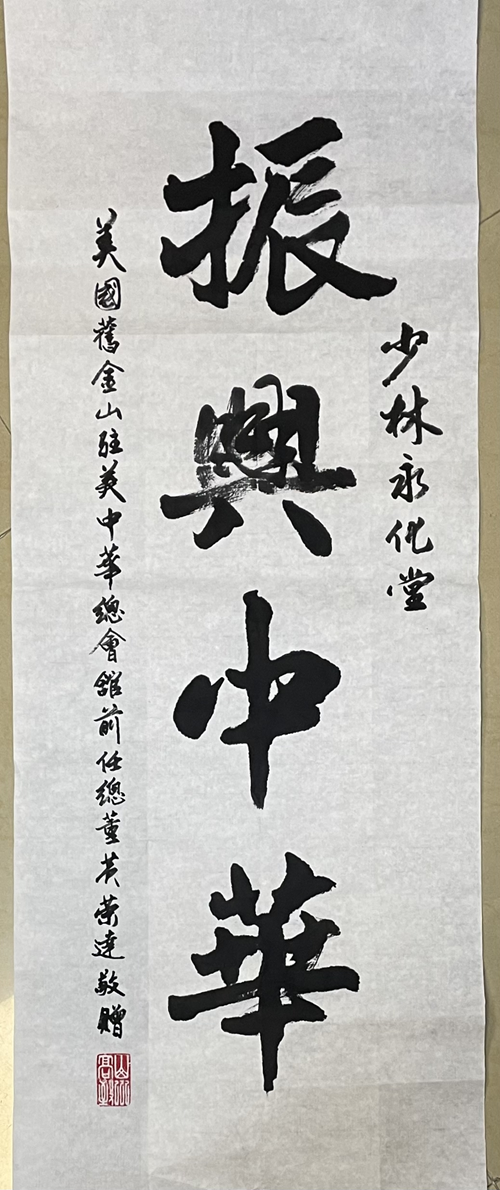 少林永化堂
振興中華
美國舊金山駐美中華總會館前任總董黃榮達敬贈